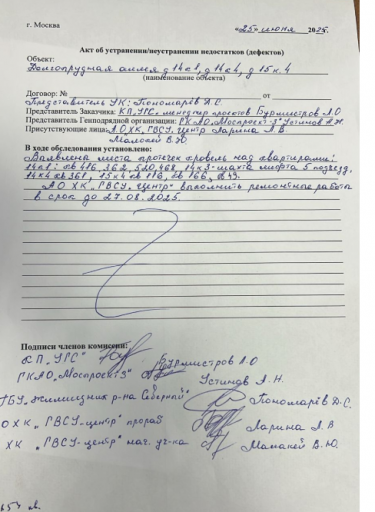 г. Москва
«25» июня 2025г.
Акт об устранении/неустранении недостатков (дефектов)
Объект:
Долгопрудная аллея д 14к1, д 14к4, д 15 к. 4
(наименование объекта)
Договор: № от
Представитель УК: Пономарёв Д.С.
Представитель Заказчика: КП „УГС" менеджер проектов Бурмистров А.О
Представитель Генподрядной организации: ГК АО „Моспроект-3" Устинов А.Н.
Присутствующие лица: АО ХК „ГВСУ-Центр" Ларина Л.В.
В.Ю
В ходе обследования установлено:
Выявлена места протечек кровель над квартирами:
14к1: кв 416, 362, 520, 468 14к3-шахта лифта 5 подъезд,
14к4 кв 361, 15к4 кв 116, кв 166,
АО ХК „ГВСУ-Центр" выполнить ремонтные работы
в срок до 27.08.2025.
Подписи членов комиссии:
КП „УГС" Бурмистров А.О
ГК АО „Моспроект-3" Устинов А.Н.
ГБУ „Жилищник р-на Северный" Пономарёв Д.С.
О ХК „ГВСУ-центр" прораб Ларина Л.В
ХК „ГВСУ-центр" нач. уч-ка В.Ю.